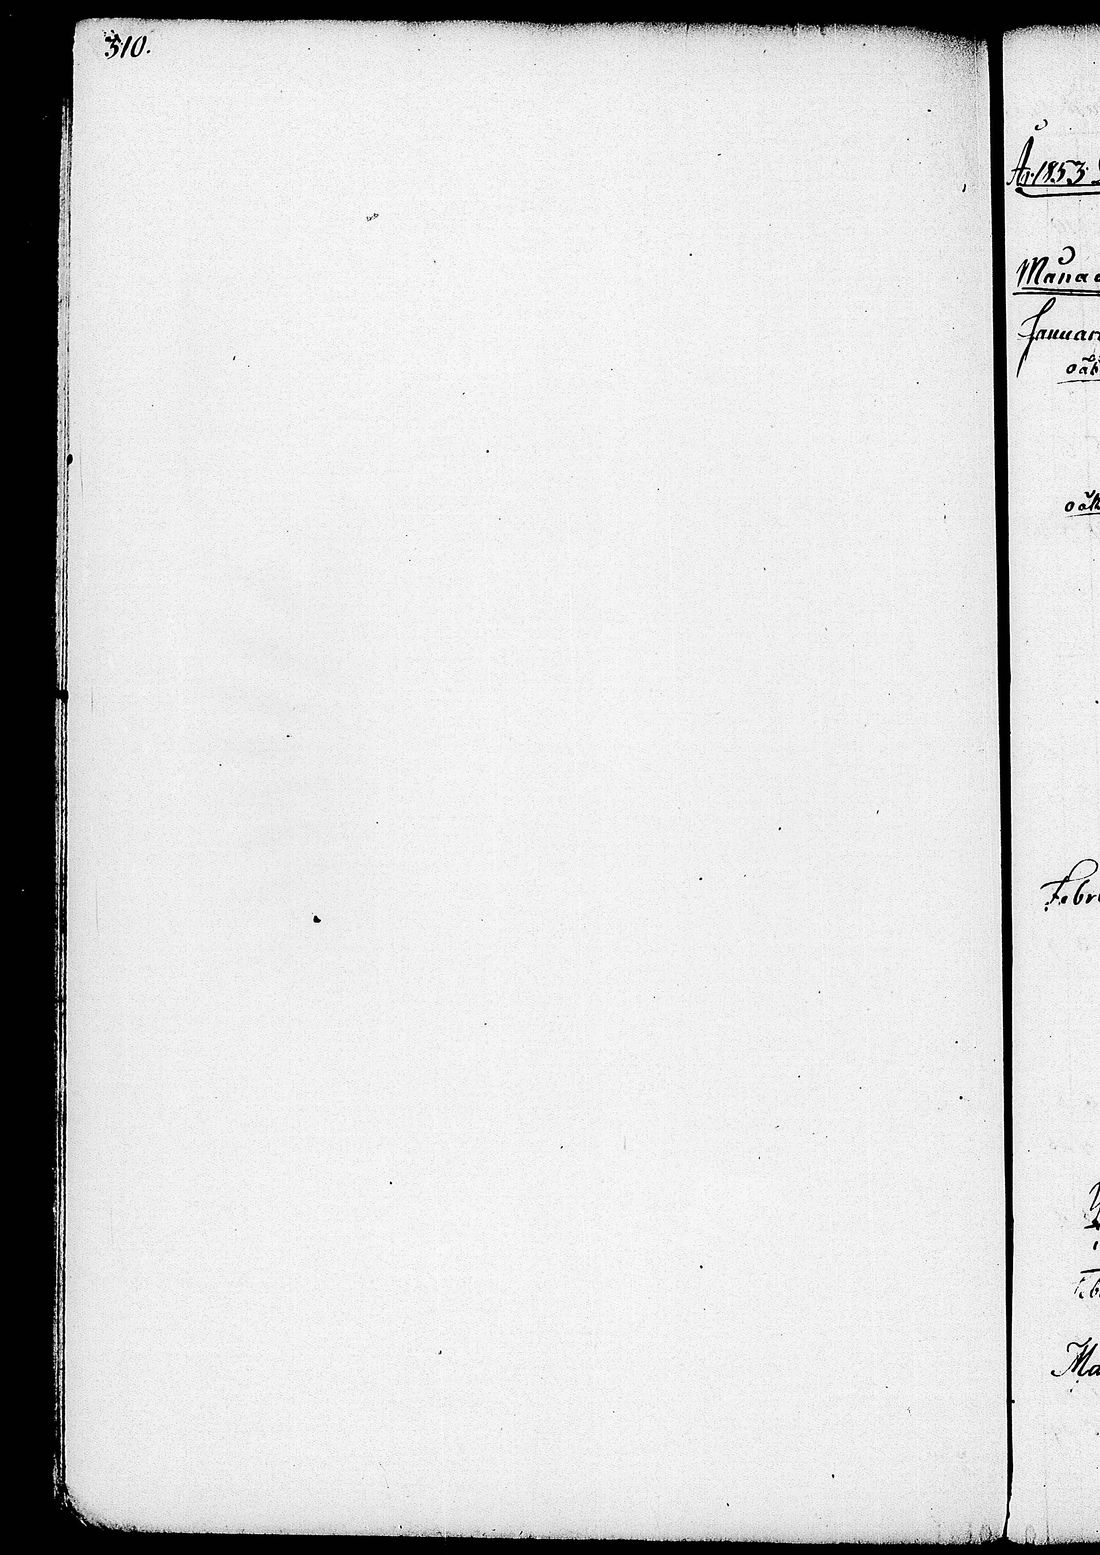 310.
År 1853
Månad
Januari
oäk
oäk
Febr
Feb
Ma